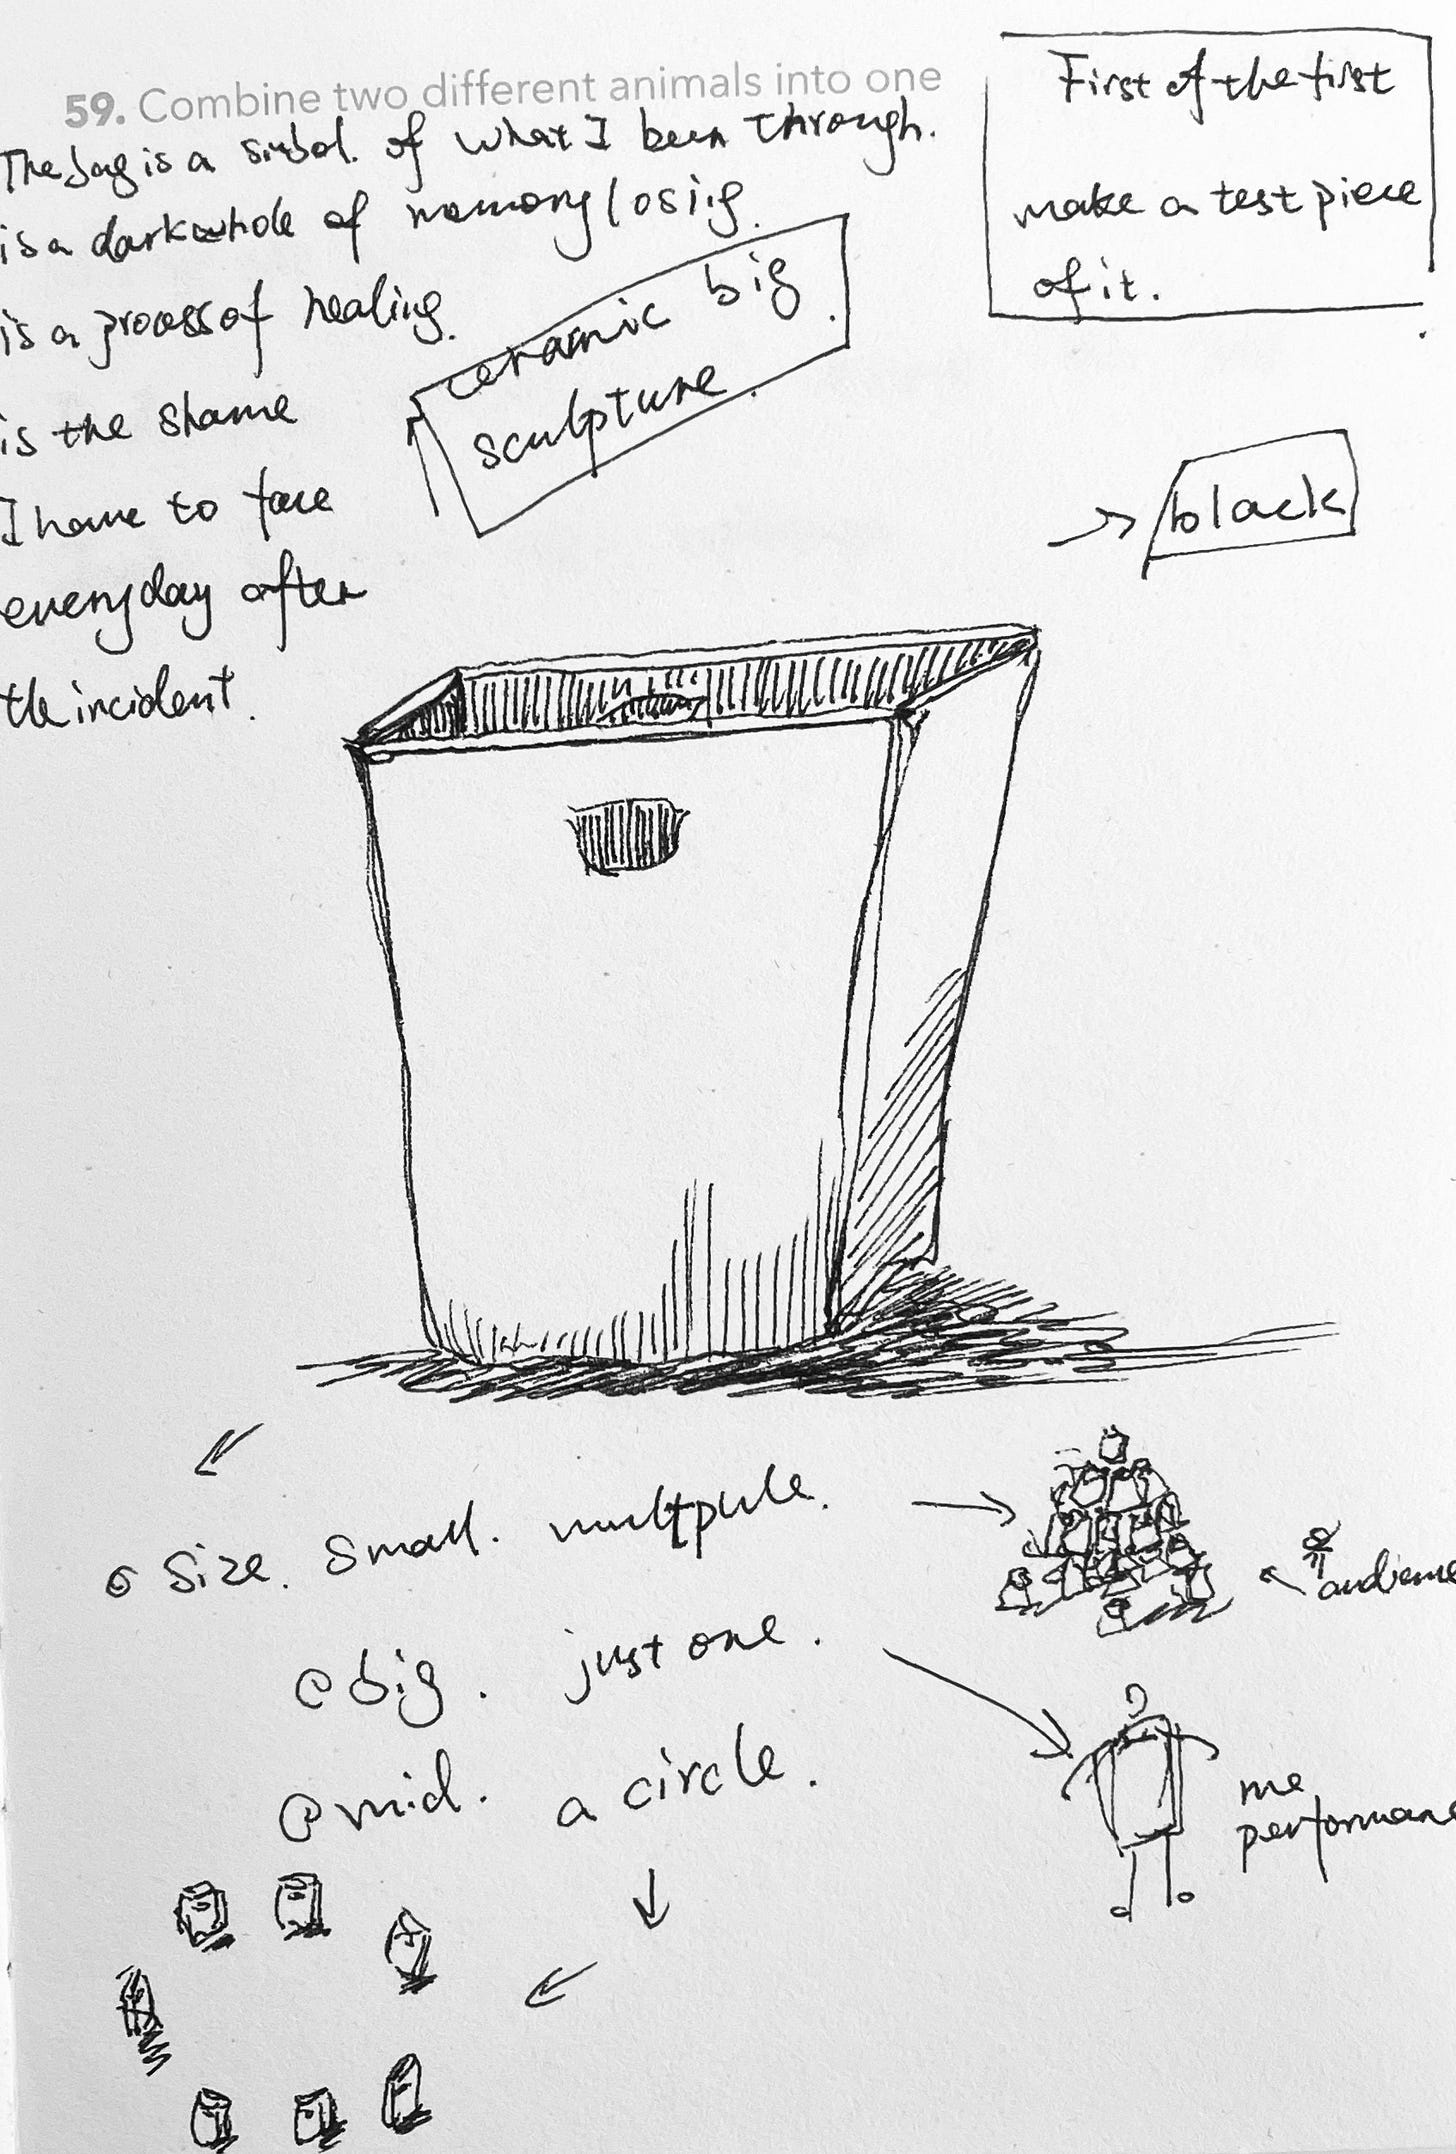 59. Combine two different animals into one
The bag is a simbol. of what I been through.
is a dark whole of memory losiig.
is a process of healing.
is the shame
I have to face
everyday after
the incident.
ceramic big
sculpture.
First of the first
make a test piece
of it.
black
Size. Small. multpule.
audience
big. just one.
mid. a circle.
me
performance